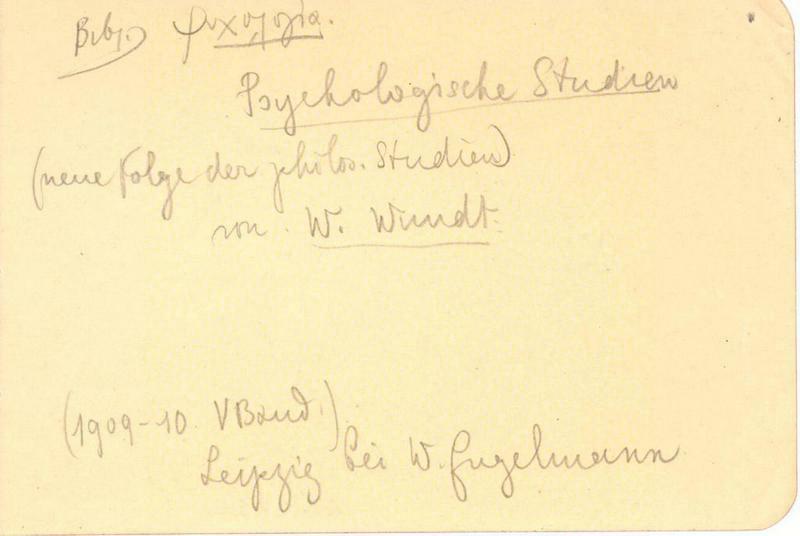 Βιβλ. ψυχολογία.
Psychologische Studien
(neue Folge der philos. Studien)
von W. Wundt.
(1909-10 V Band.)
Leipzig bei W. Engelmann